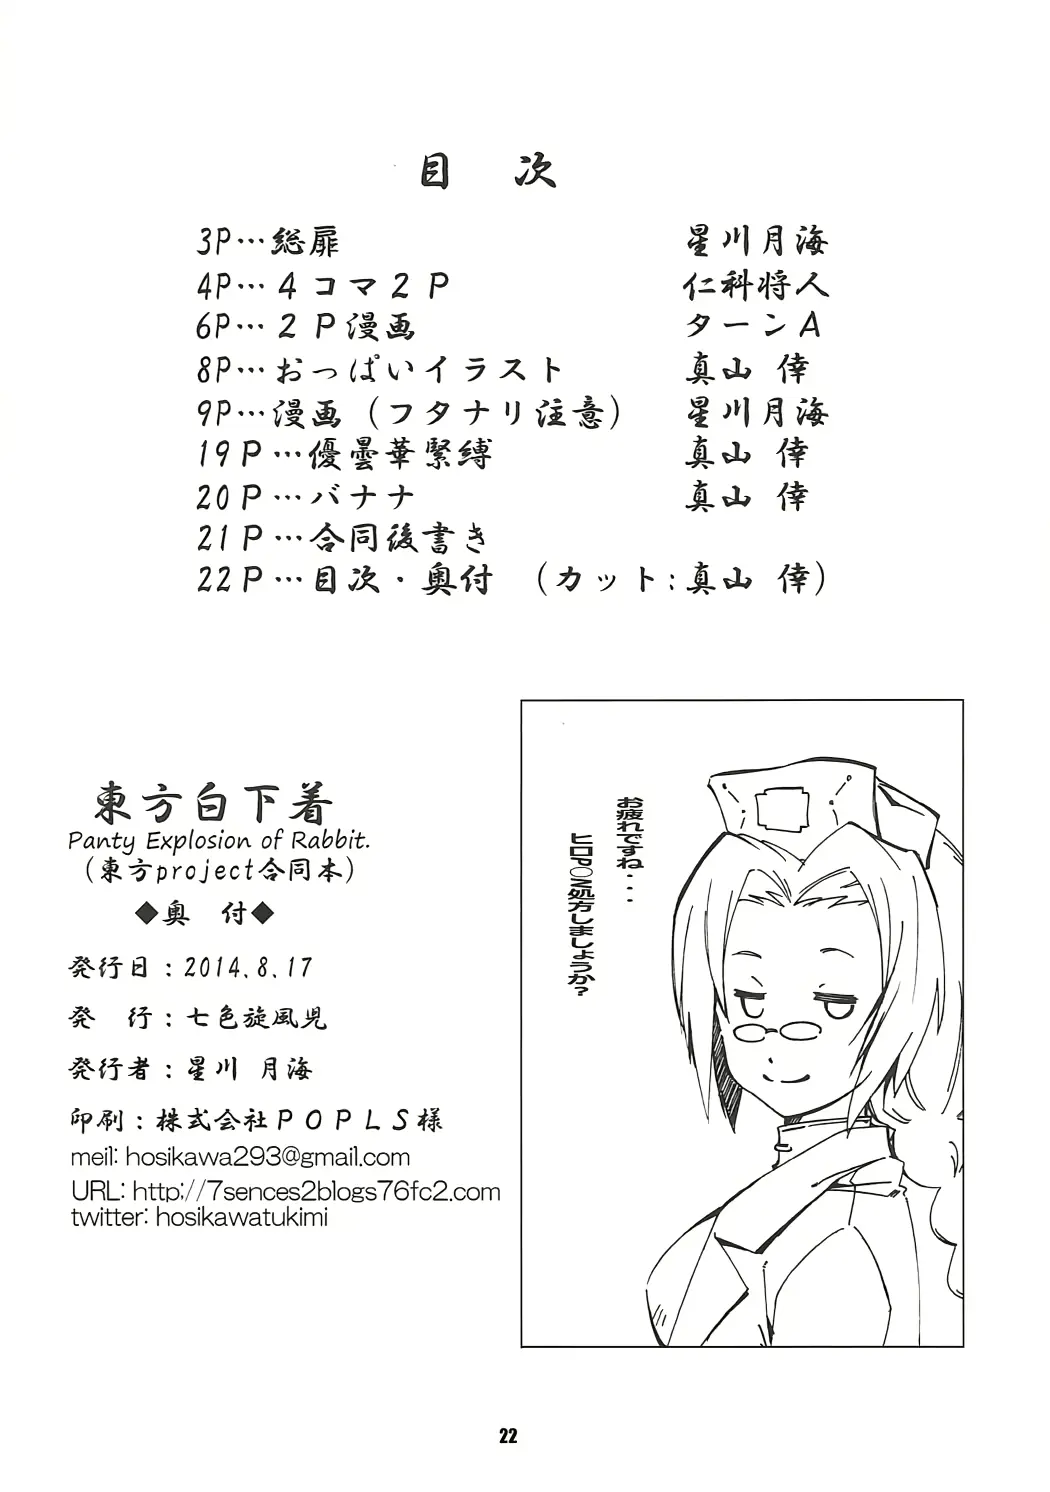 目　次
3P…総扉　星川月海
4P…４コマ２Ｐ　仁科将人
6P…２Ｐ漫画　ターンＡ
8P…おっぱいイラスト　真山　倖
9P…漫画（フタナリ注意）　星川月海
19Ｐ…優曇華緊縛　真山　倖
20Ｐ…バナナ　真山　倖
21Ｐ…合同後書き
22Ｐ…目次・奥付　（カット:真山　倖）
お疲れですね・・・
ヒロP○N処方しましょうか？
東方白下着
Panty Explosion of Rabbit.
（東方project合同本）
◆奥　付◆
発行日：2014.8.17
発　行：七色旋風児
発行者：星川　月海
印刷：株式会社ＰＯＰＬＳ様
meil: hosikawa293@gmail.com
URL: http://7sences2blogs76fc2.com
twitter: hosikawatukimi
22